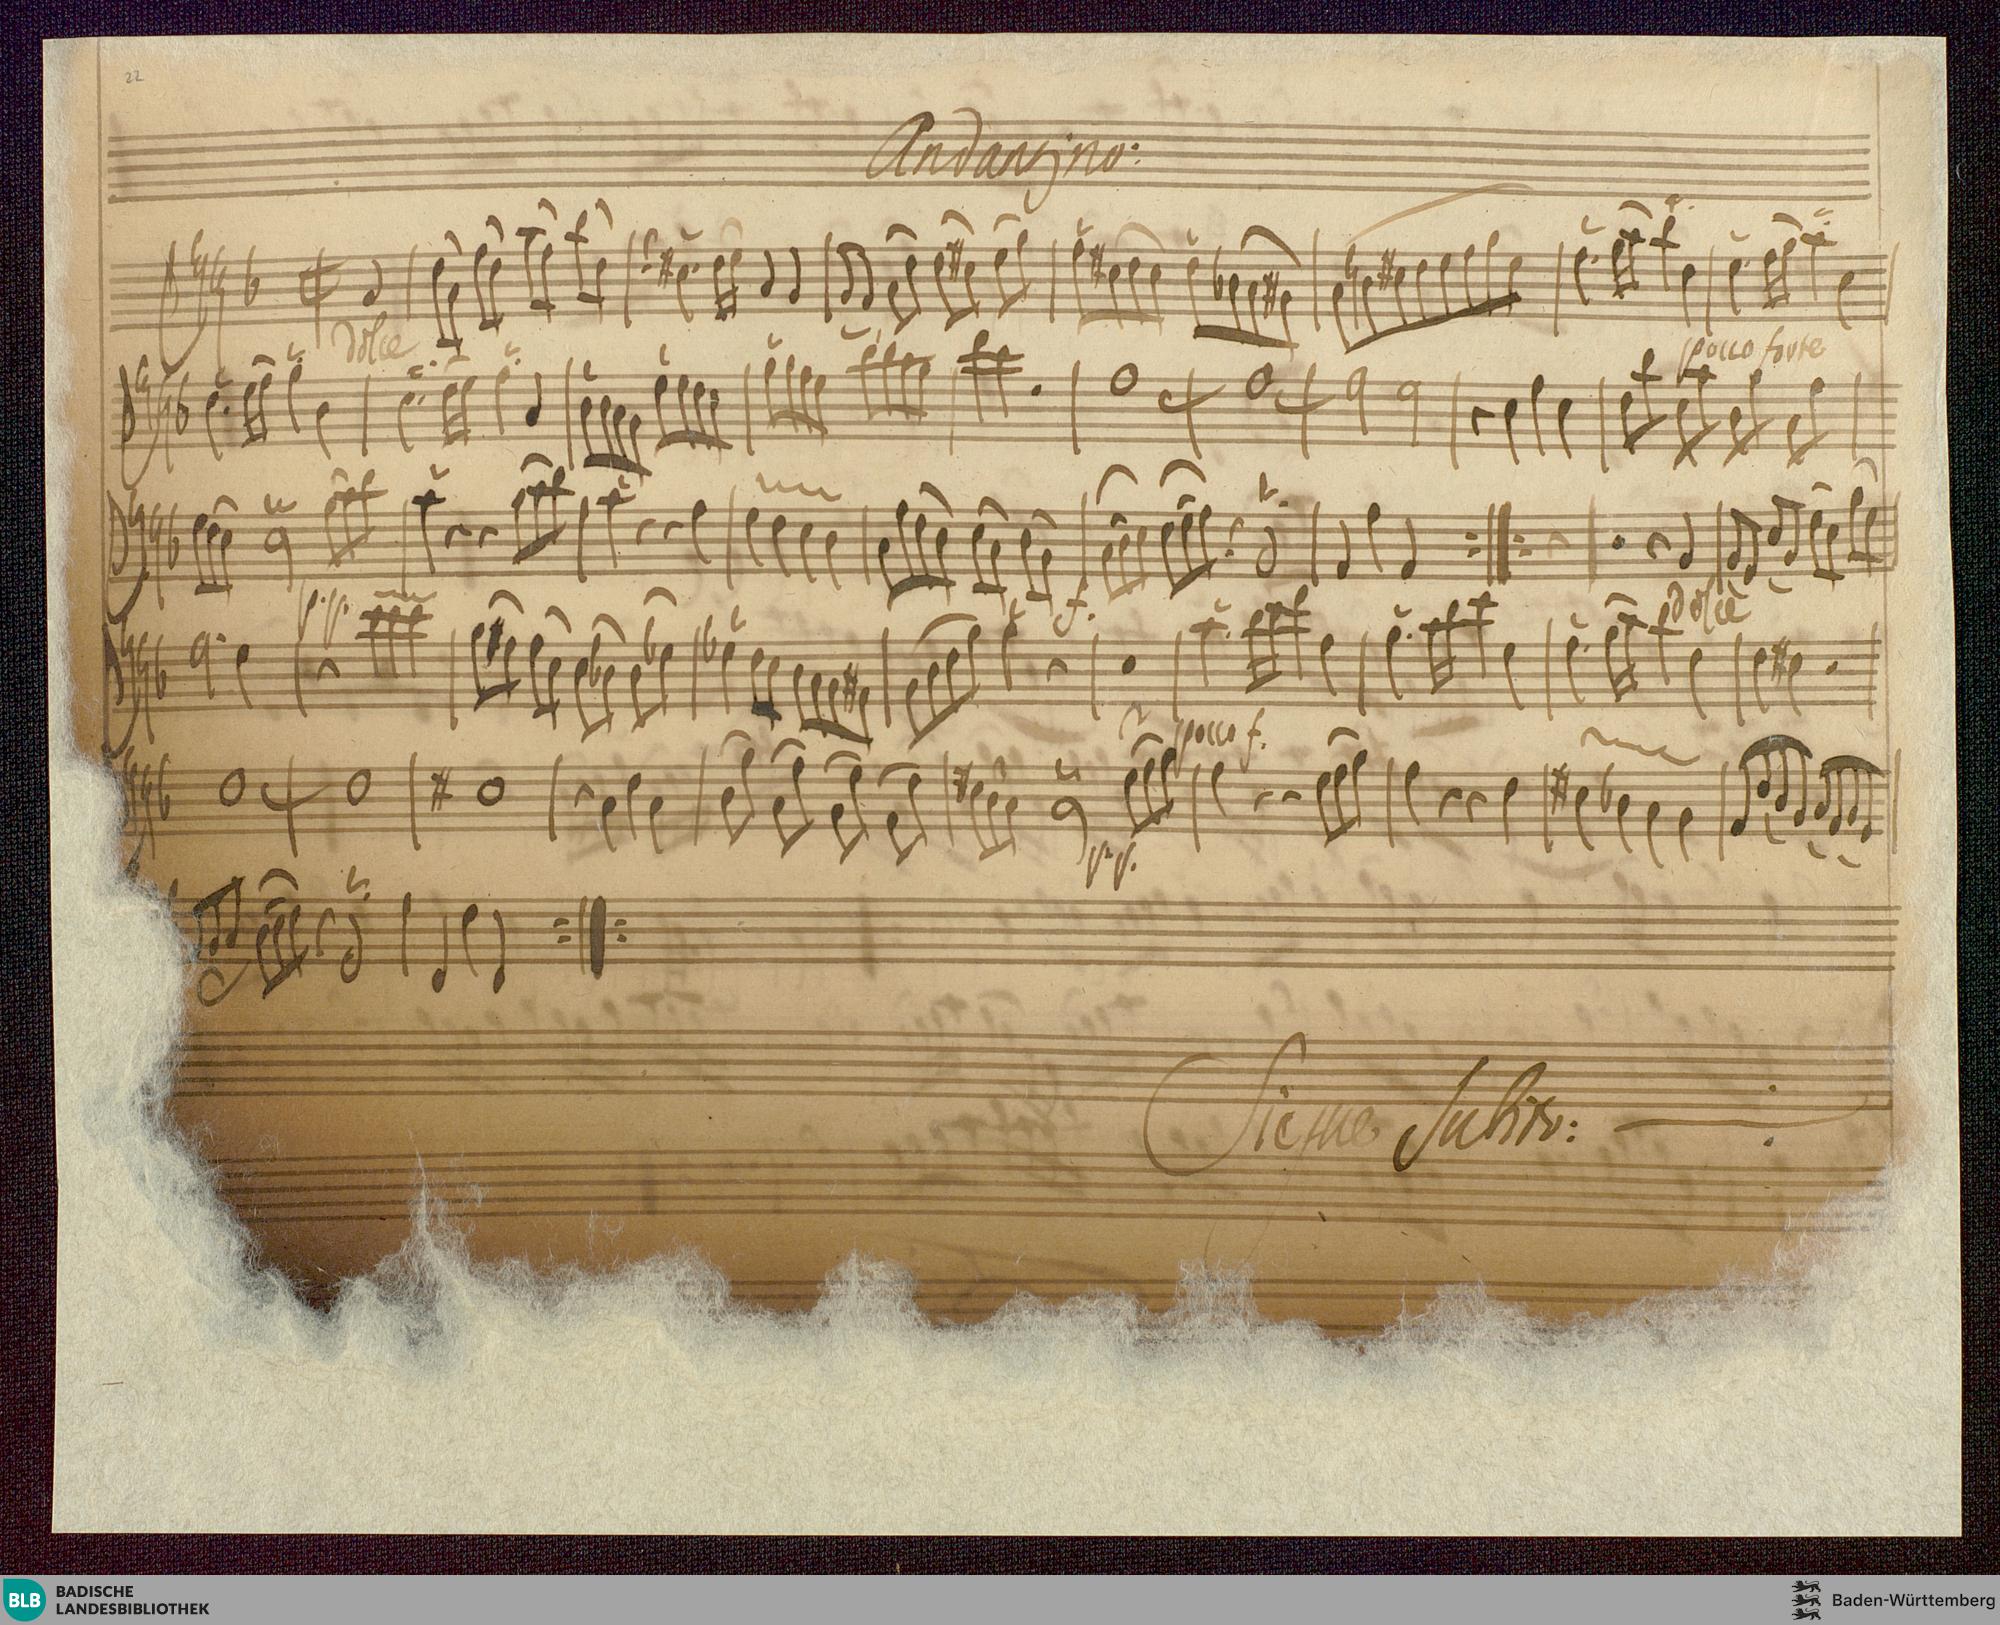 22
Andanzino:
dolce
pocco forte
p.p.
f.
dolcè
pocco f.
pp.
Sieque Subito:
BLB
BADISCHE
LANDESBIBLIOTHEK
Baden-Württemberg